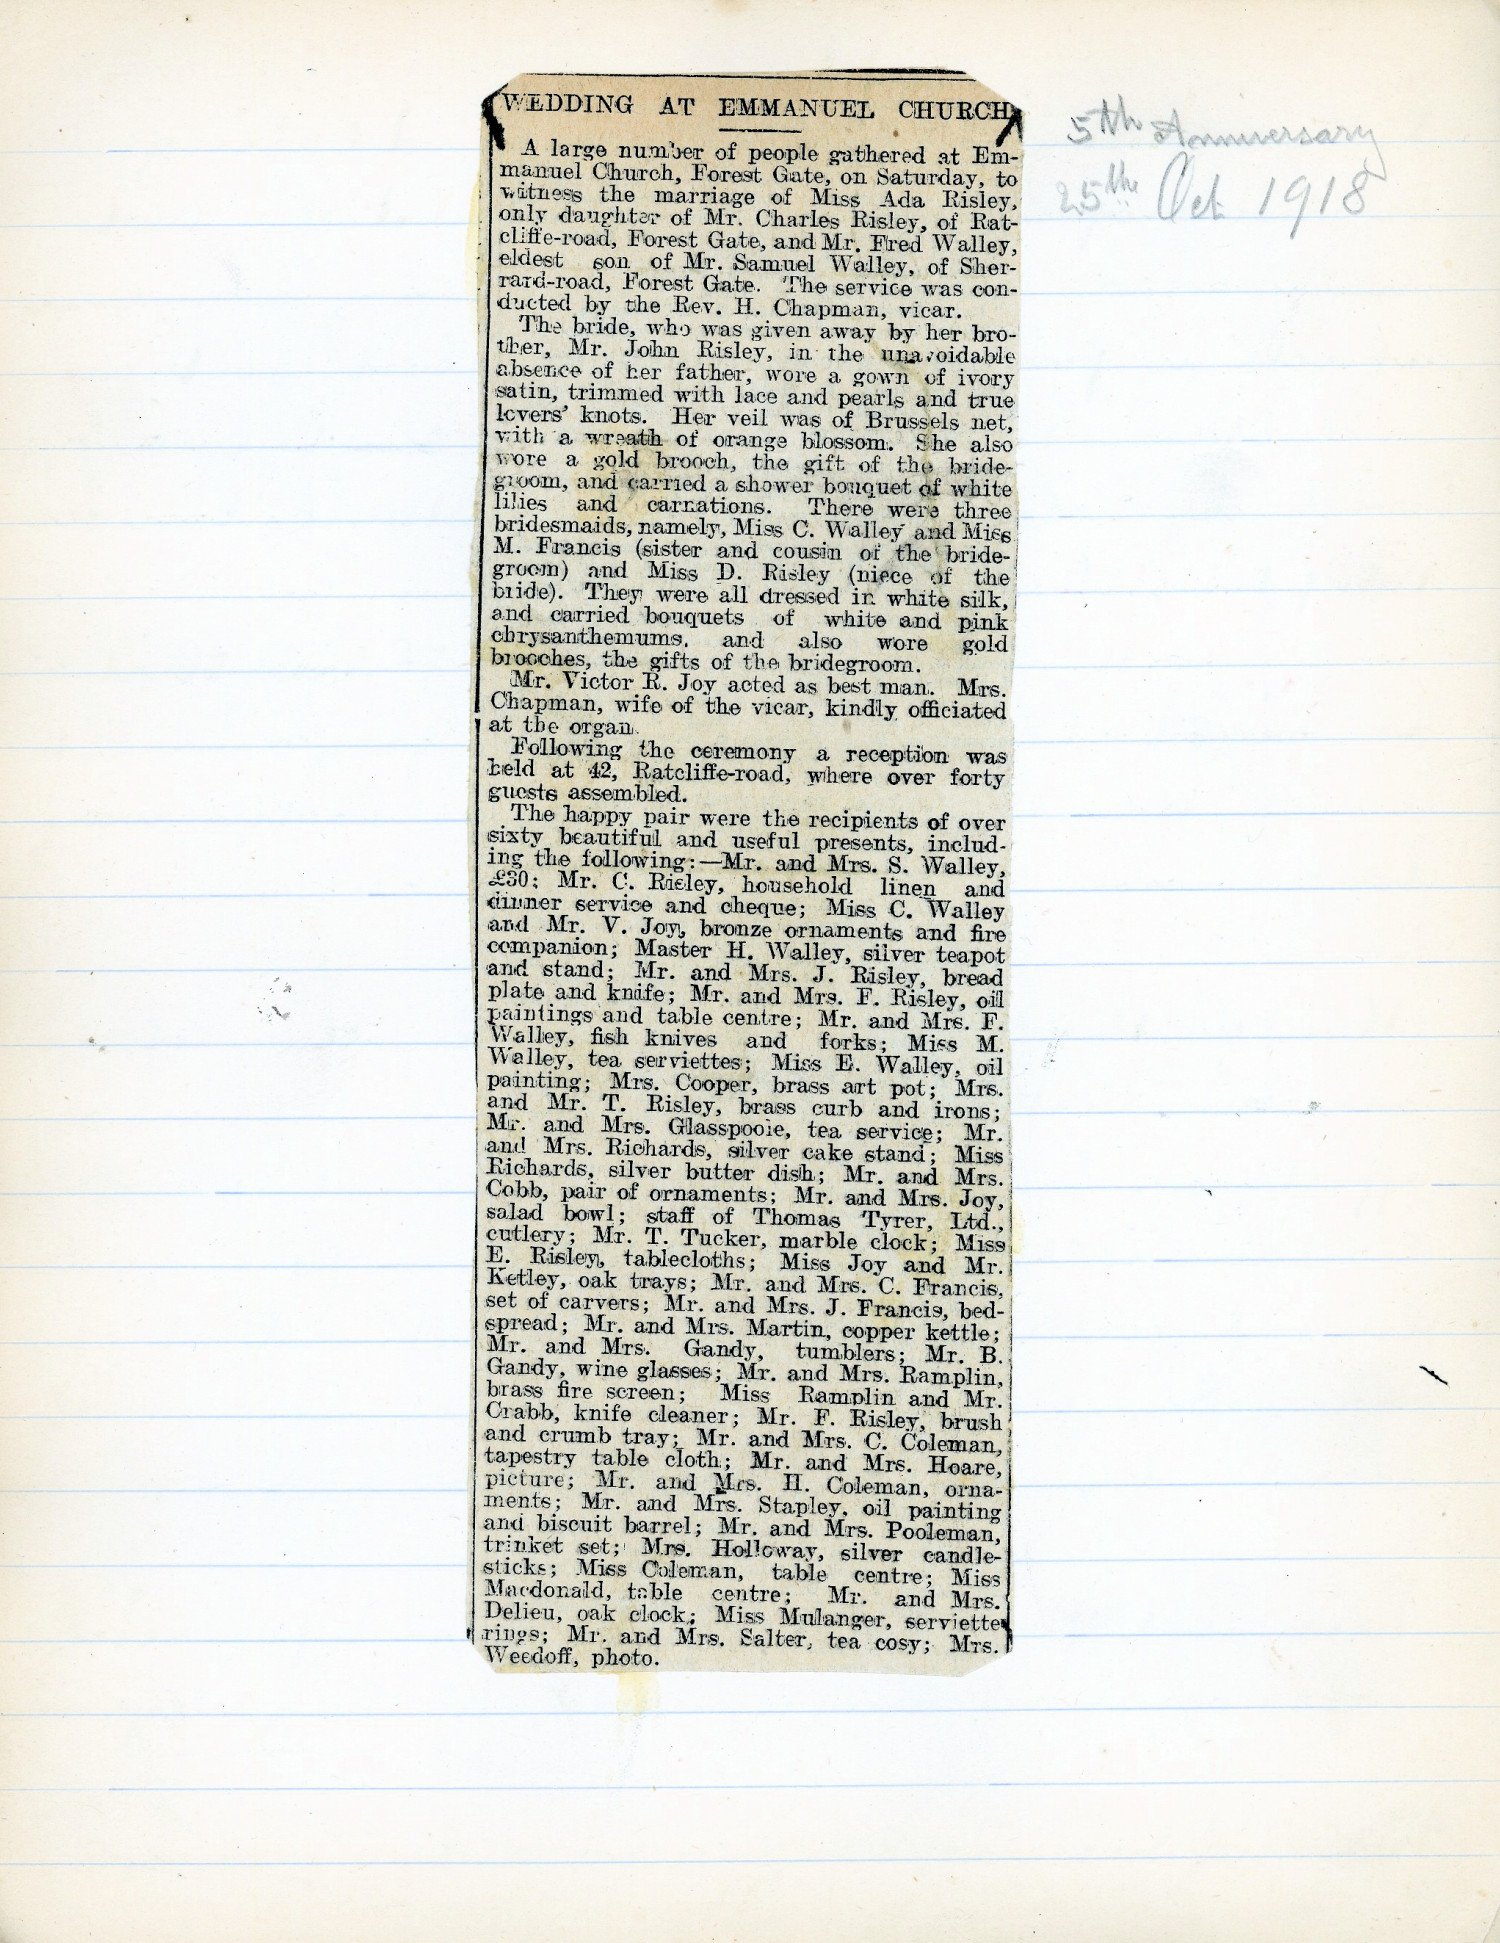 WEDDING AT EMMANUEL CHURCH
5th Anniversary
25th Oct 1918
A large number of people gathered at Em-
manuel Church, Forest Gate, on Saturday, to
witness the marriage of Miss Ada Risley,
only daughter of Mr. Charles Risley, of Rat-
cliffe-road, Forest Gate, and Mr. Fred Walley,
eldest son of Mr. Samuel Walley, of Sher-
rard-road, Forest Gate. The service was con-
ducted by the Rev. H. Chapman, vicar.
The bride, who was given away by her bro-
ther, Mr. John Risley, in the unavoidable
absence of her father, wore a gown of ivory
satin, trimmed with lace and pearls and true
lovers' knots. Her veil was of Brussels net,
with a wreath of orange blossom. She also
wore a gold brooch, the gift of the bride-
groom, and carried a shower bouquet of white
lilies and carnations. There were three
bridesmaids, namely, Miss C. Walley and Miss
M. Francis (sister and cousin of the bride-
groom) and Miss D. Risley (niece of the
bride). They were all dressed in white silk,
and carried bouquets of white and pink
chrysanthemums, and also wore gold
brooches, the gifts of the bridegroom.
Mr. Victor R. Joy acted as best man. Mrs.
Chapman, wife of the vicar, kindly officiated
at the organ.
Following the ceremony a reception was
held at 42, Ratcliffe-road, where over forty
guests assembled.
The happy pair were the recipients of over
sixty beautiful and useful presents, includ-
ing the following:—Mr. and Mrs. S. Walley,
£30; Mr. C. Risley, household linen and
dinner service and cheque; Miss C. Walley
and Mr. V. Joy, bronze ornaments and fire
companion; Master H. Walley, silver teapot
and stand; Mr. and Mrs. J. Risley, bread
plate and knife; Mr. and Mrs. F. Risley, oil
paintings and table centre; Mr. and Mrs. F.
Walley, fish knives and forks; Miss M.
Walley, tea serviettes; Miss E. Walley, oil
painting; Mrs. Cooper, brass art pot; Mrs.
and Mr. T. Risley, brass curb and irons;
Mr. and Mrs. Glasspoole, tea service; Mr.
and Mrs. Richards, silver cake stand; Miss
Richards, silver butter dish; Mr. and Mrs.
Cobb, pair of ornaments; Mr. and Mrs. Joy,
salad bowl; staff of Thomas Tyrer, Ltd.,
cutlery; Mr. T. Tucker, marble clock; Miss
E. Risley, tablecloths; Miss Joy and Mr.
Ketley, oak trays; Mr. and Mrs. C. Francis,
set of carvers; Mr. and Mrs. J. Francis, bed-
spread; Mr. and Mrs. Martin, copper kettle;
Mr. and Mrs. Gandy, tumblers; Mr. B.
Gandy, wine glasses; Mr. and Mrs. Ramplin,
brass fire screen; Miss Ramplin and Mr.
Crabb, knife cleaner; Mr. F. Risley, brush
and crumb tray; Mr. and Mrs. C. Coleman,
tapestry table cloth; Mr. and Mrs. Hoare,
picture; Mr. and Mrs. H. Coleman, orna-
ments; Mr. and Mrs. Stapley, oil painting
and biscuit barrel; Mr. and Mrs. Pooleman,
trinket set; Mrs. Holloway, silver candle-
sticks; Miss Coleman, table centre; Miss
Macdonald, table centre; Mr. and Mrs.
Delieu, oak clock; Miss Mulanger, serviette
rings; Mr. and Mrs. Salter, tea cosy; Mrs.
Weedoff, photo.